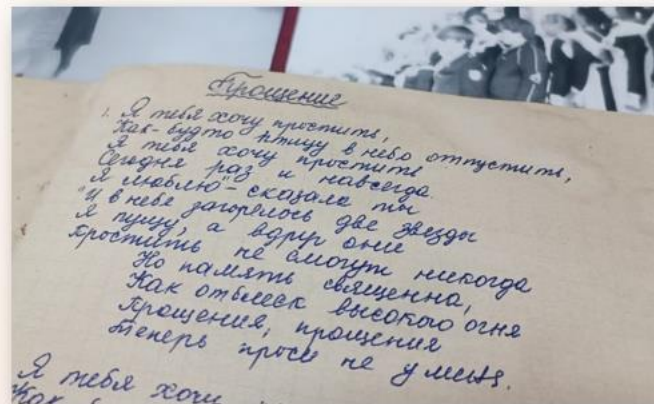 Прощение
1. Я тебя хочу простить,
Как-будто птицу в небо отпустить,
Я тебя хочу простить
Сегодня раз и навсегда
Я люблю"- сказала ты
"И в небе загорелось две звезды
Я пущу, а вдруг они
Простить не смогут никогда
Но память священна,
Как отблеск высокого огня
Прощения, прощения
Теперь проси не у меня.
Я тебя хочу
Как